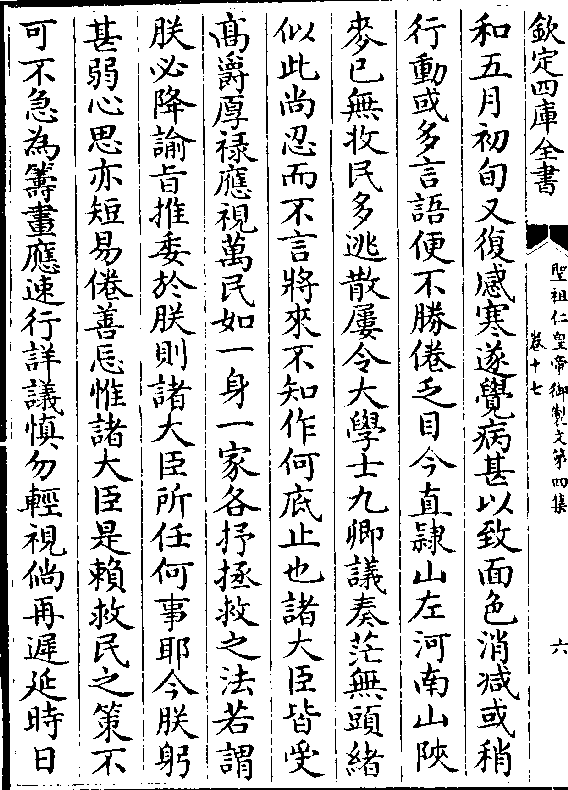 欽定四庫全書
聖祖仁皇帝御製文第四集
卷十七
六
和五月初旬又復感寒遂覺病甚以致面色消减或稍
行動或多言語便不勝倦乏目今直隸山左河南山陜
麥已無收民多逃散屢令大學士九卿議奏茫無頭緒
似此尚忍而不言將來不知作何底止也諸大臣皆受
髙爵厚祿應視萬民如一身一家各抒拯救之法若謂
朕必降諭旨推委於朕則諸大臣所任何事耶今朕躬
甚弱心思亦短易倦善忘惟諸大臣是賴救民之策不
可不急為籌畫應速行詳議慎勿輕視倘再遲延時日